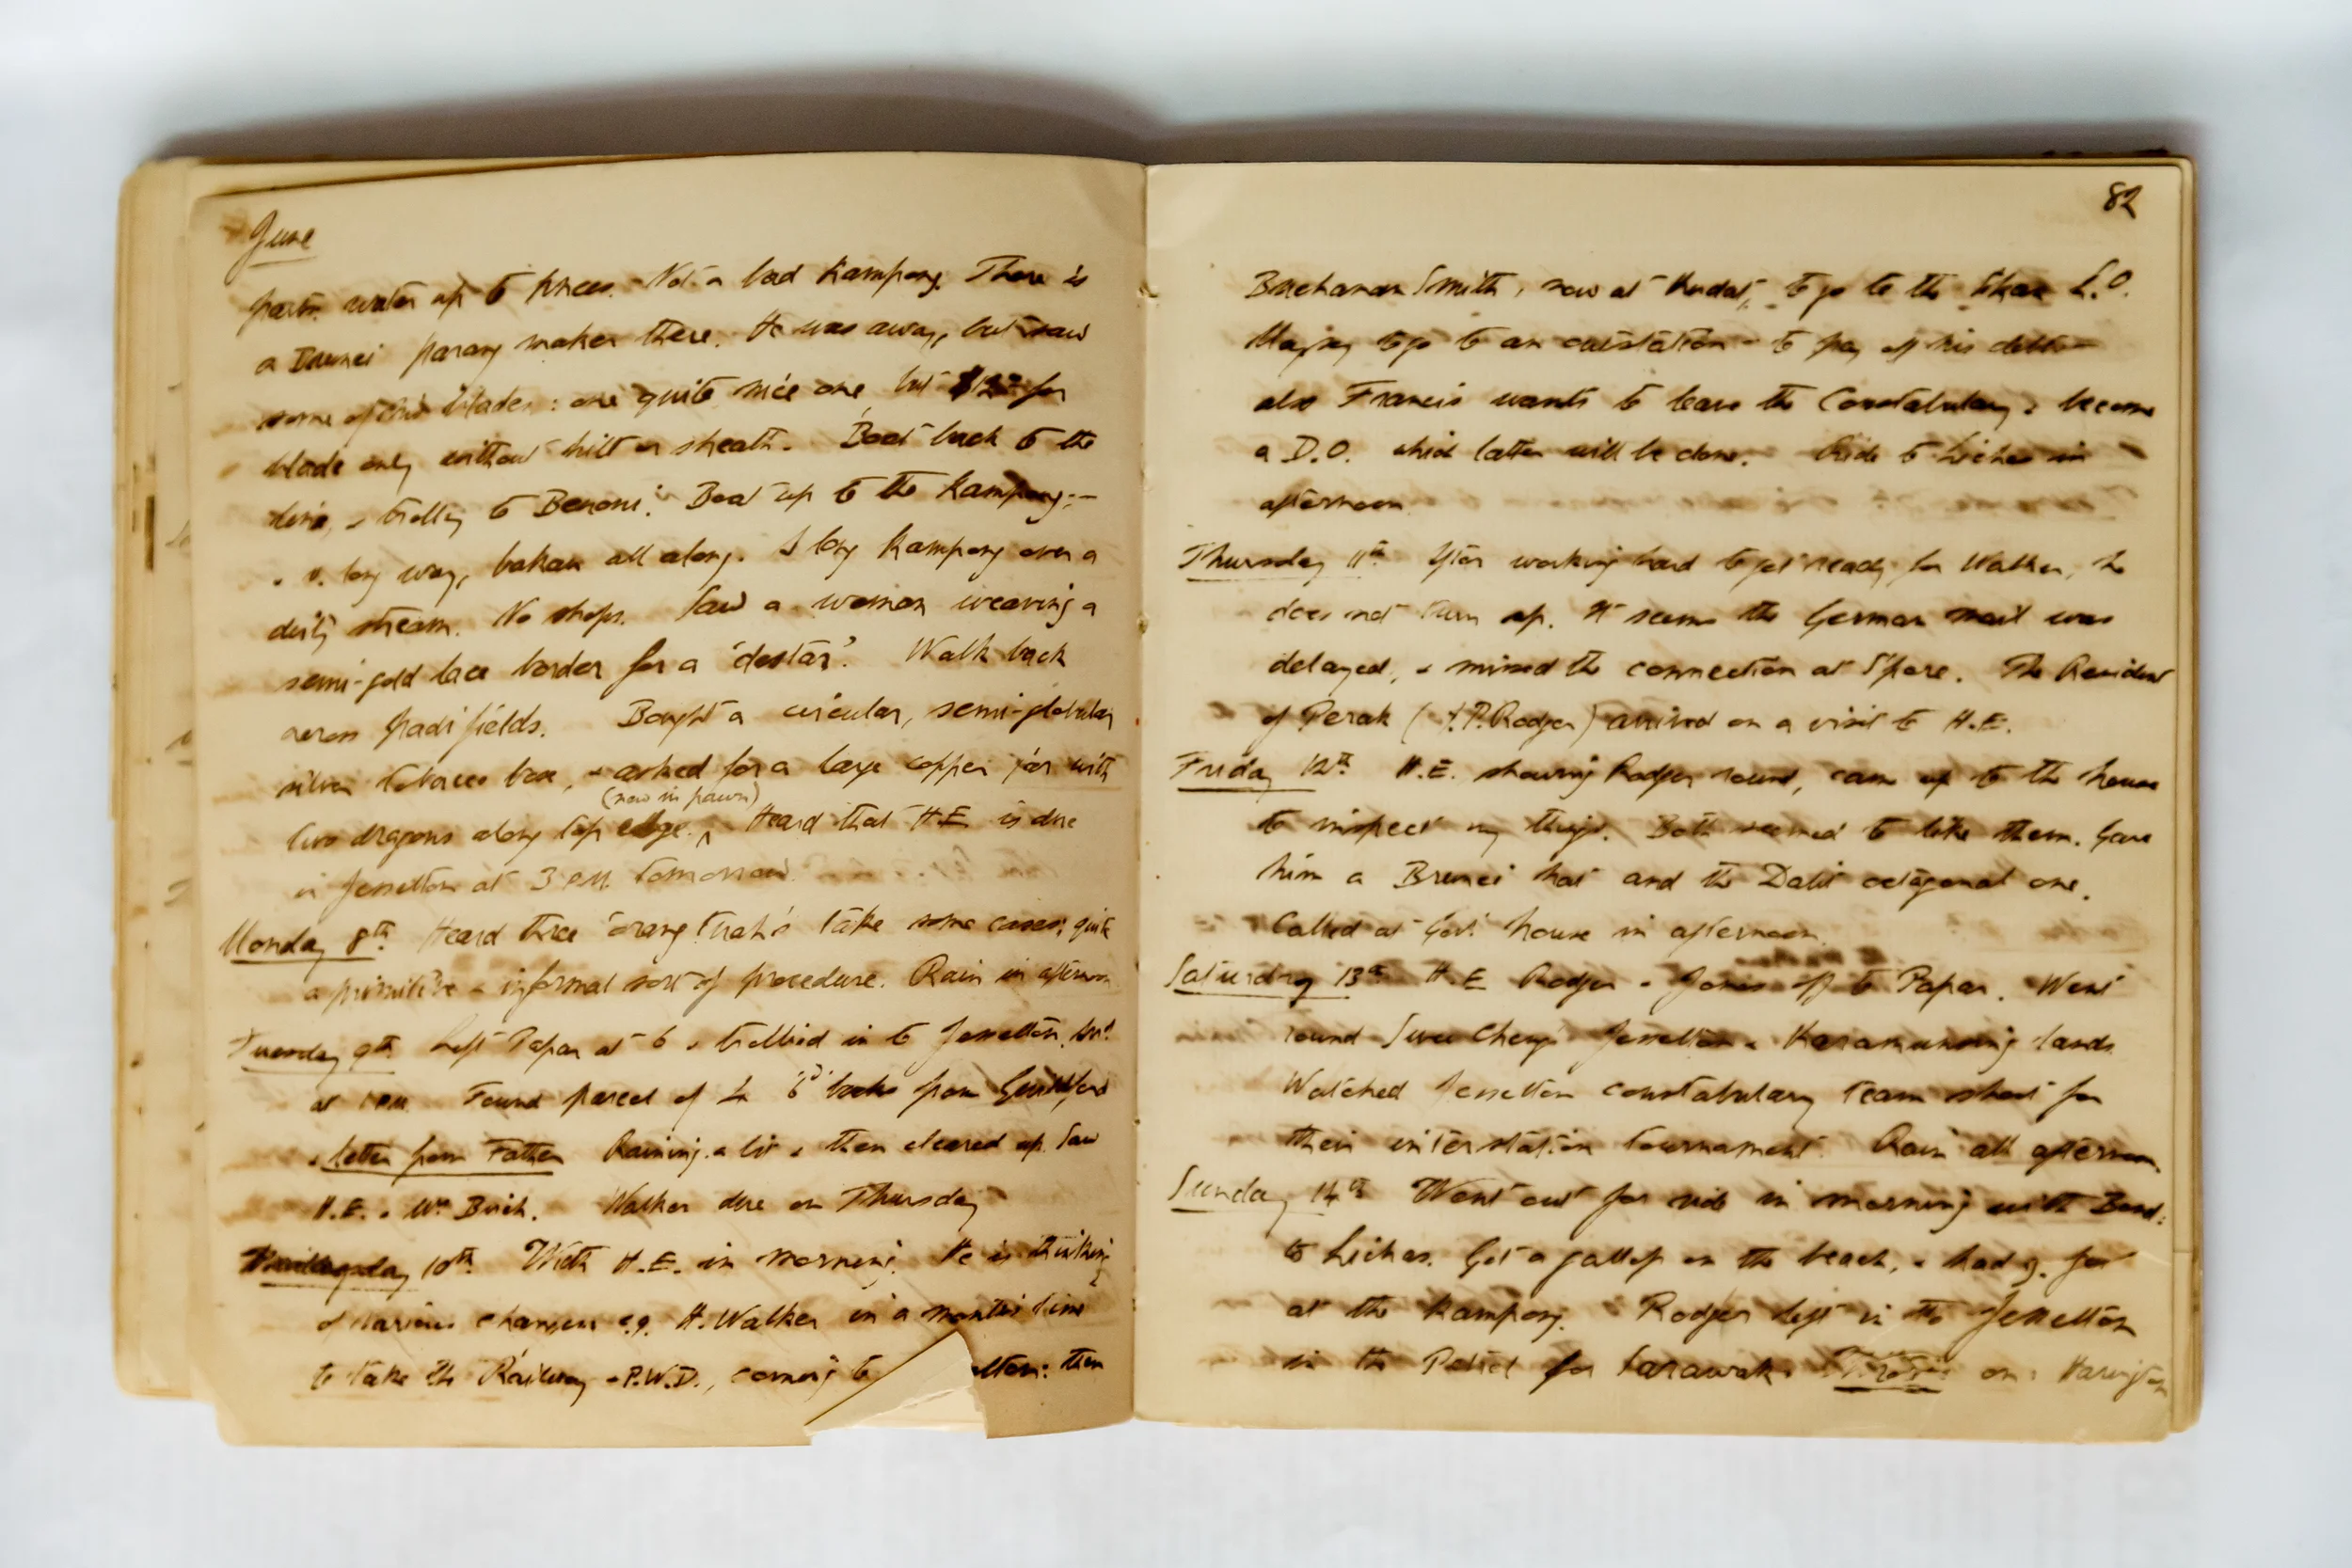 June
water up to knees. Not a bad Kampong. There is
a Brunei parang maker there. He was away, but saw
some of his blades: one quite nice one but $12 for
blade only without hilt or sheath. Boat back to the
line, & trolley to Benoni. Boat up to the Kampong:-
a v. long way, bakau all along. A long Kampong over a
dirty stream. No shops. Saw a woman weaving a
semi-gold lace border for a 'destar'. Walk back
across padi fields. Bought a circular, semi-globular
silver tobacco box, & asked for a large copper jar with
(now in pawn)
two dragons along top edge. Heard that H.E is due
in Jesselton at 3 P.M. tomorrow.
Monday 8th Heard three 'orang tuah's' take some cases; quite
a primitive & informal sort of procedure. Rain in afternoon
Tuesday 9th Left Papar at 6 & trollied in to Jesselton,
at 1 P.M. Found parcel of 6d books from Guildford
& letter from Father Raining a bit & then cleared up. Saw
H.E. & Mrs Birch. Walker due on Thursday
10th With H.E. in morning. He is thinking
of various changes e.g. H. Walker in a month's time
to take the Railway & P.W.D., coming to elton: then
82
Buchanan Smith, now at Kudat, to go to the L.O.
to go to an outstation to pay off his debts
also Francis wants to leave the Constabulary & become
a D.O. which latter will be done. Ride to Likas in
afternoon.
Thursday 11th After working hard to get ready for Walker, he
does not turn up. It seems the German mail was
delayed, & missed the connection at S'pore. The Resident
of Perak (J.P. Rodger) arrived on a visit to H.E.
Friday 12th H.E. showing Rodger round, came up to the house
to inspect my things. Both seemed to like them. Gave
him a Brunei hat and the Dalit octagonal one.
Called at Govt house in afternoon.
Saturday 13th H.E Rodger & Jones off to Papar. Went
round Swee Cheng's Jesselton & Karamunsing lands
Watched Jesselton constabulary team shoot for
their interstation tournament. Rain all afternoon.
Sunday 14th Went out for ride in morning with Bond:
to Likas. Got a gallop on the beach, & had
at the Kampong. Rodger left in the Jesselton
in the Patrol for Sarawak. on: Harington